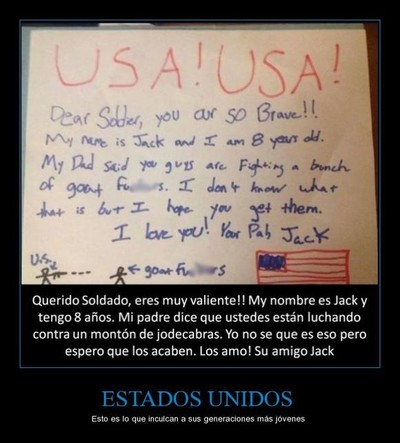 USA! USA!
Dear Soldier, you our so Brave!!
My name is Jack and I am 8 years old.
My Dad said you guys are Fighting a bunch
of goat Fu s. I don't know what
that is but I hope you get them.
I love you! Your Pah Jack
U.S.
goat fu rs
Querido Soldado, eres muy valiente!! My nombre es Jack y
tengo 8 años. Mi padre dice que ustedes están luchando
contra un montón de jodecabras. Yo no se que es eso pero
espero que los acaben. Los amo! Su amigo Jack
ESTADOS UNIDOS
Esto es lo que inculcan a sus generaciones más jóvenes